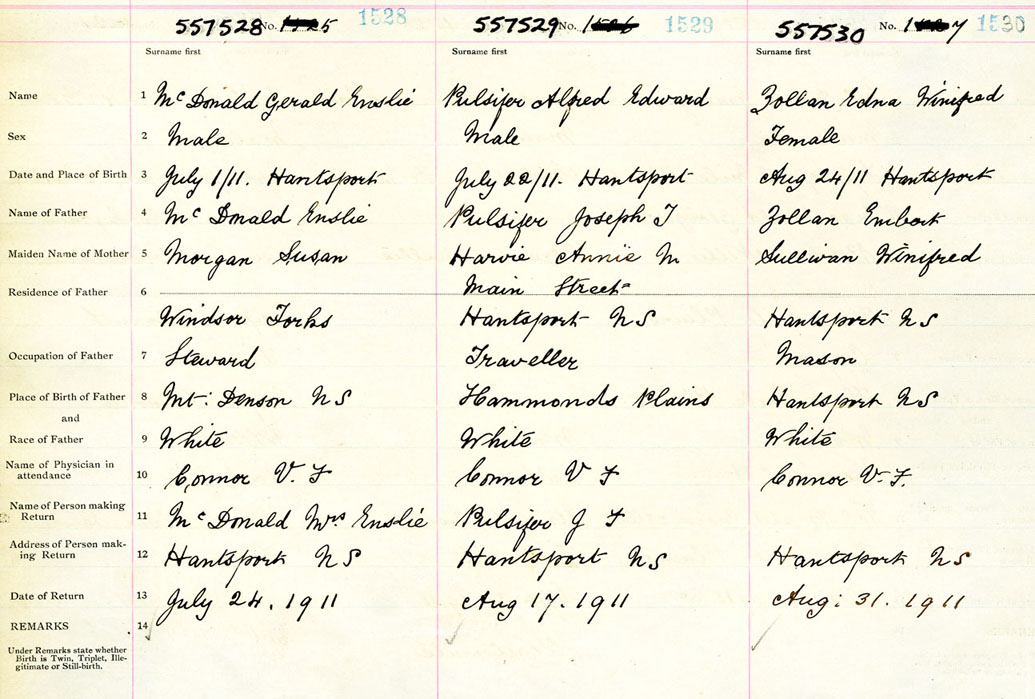 557528 No. 1528
557529 No. 1529
557530 No. 7 1530
Surname first Surname first Surname first
Name 1 McDonald Gerald Enslie Pulsifer Alfred Edward Zollan Edna Winifred
Sex 2 Male Male Female
Date and Place of Birth 3 July 1/11. Hantsport July 22/11. Hantsport Aug 24/11 Hantsport
Name of Father 4 McDonald Enslie Pulsifer Joseph Zollan
Maiden Name of Mother 5 Morgan Susan Harvie Annie M Sullivan Winifred
Residence of Father 6 Main Street
Windsor Forks Hantsport NS Hantsport NS
Occupation of Father 7 Steward Traveller Mason
Place of Birth of Father 8 Mt: Denson NS Hammonds Plains Hantsport NS
and
Race of Father 9 White White White
Name of Physician in
attendance 10 Connor V. F Connor V F Connor V. F.
Name of Person making
Return 11 McDonald Mrs Enslie Pulsifer J F
Address of Person mak-
ing Return 12 Hantsport NS Hantsport NS Hantsport NS
Date of Return 13 July 24. 1911 Aug 17. 1911 Aug: 31. 1911
REMARKS 14
Under Remarks state whether
Birth is Twin, Triplet, Ille-
gitimate or Still-birth.